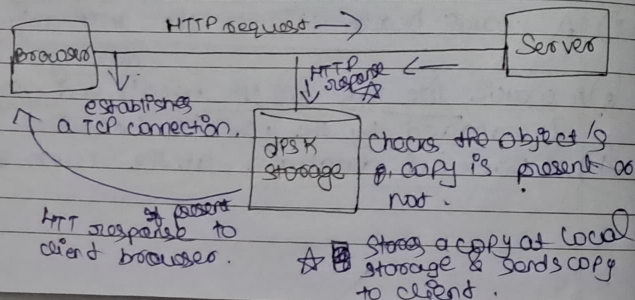 HTTP request →
Browser
Server
HTTP response ☆
←
establishes
a TCP connection.
disk
storage
Checks the object's
copy is present or
not.
if present
HTT response to
client browser.
☆ Stores a copy at local
storage & sends copy
to client.